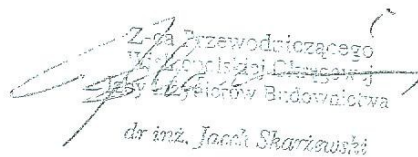 Z-ca Przewodniczącego
Wielkopolskiej Okręgowej
Izby Inżynierów Budownictwa
dr inż. Jacek Skarżewski